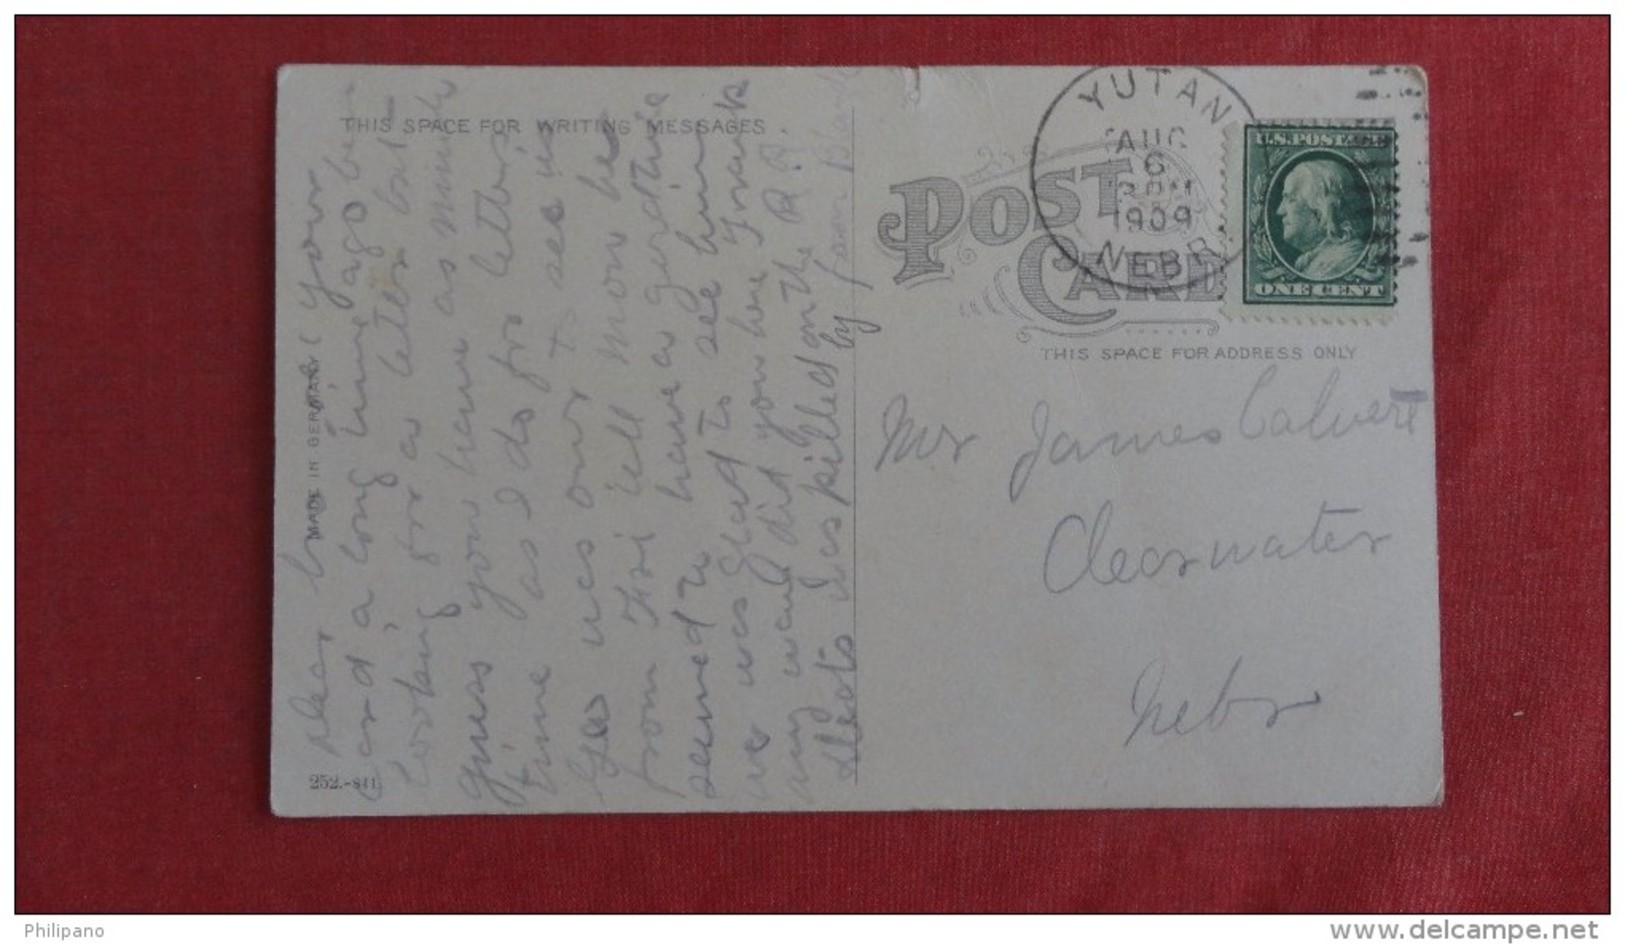 THIS SPACE FOR WRITING MESSAGES
Dear your
card a long time ago been
looking for a letter but
guess you have as much
time as I do for letters
was over to see us
from Fri till Mon he
seemed to have a good time
we was glad to see him Frank
any way did you here
was killed on the R.R.
by
MADE IN GERMANY
252.-811
POST CARD
YUTAN
AUG
6
1909
NEBR
U.S. POSTAGE
ONE CENT
THIS SPACE FOR ADDRESS ONLY
Mr James Calvert
Clearwater
Nebr
Philipano
www.delcampe.net